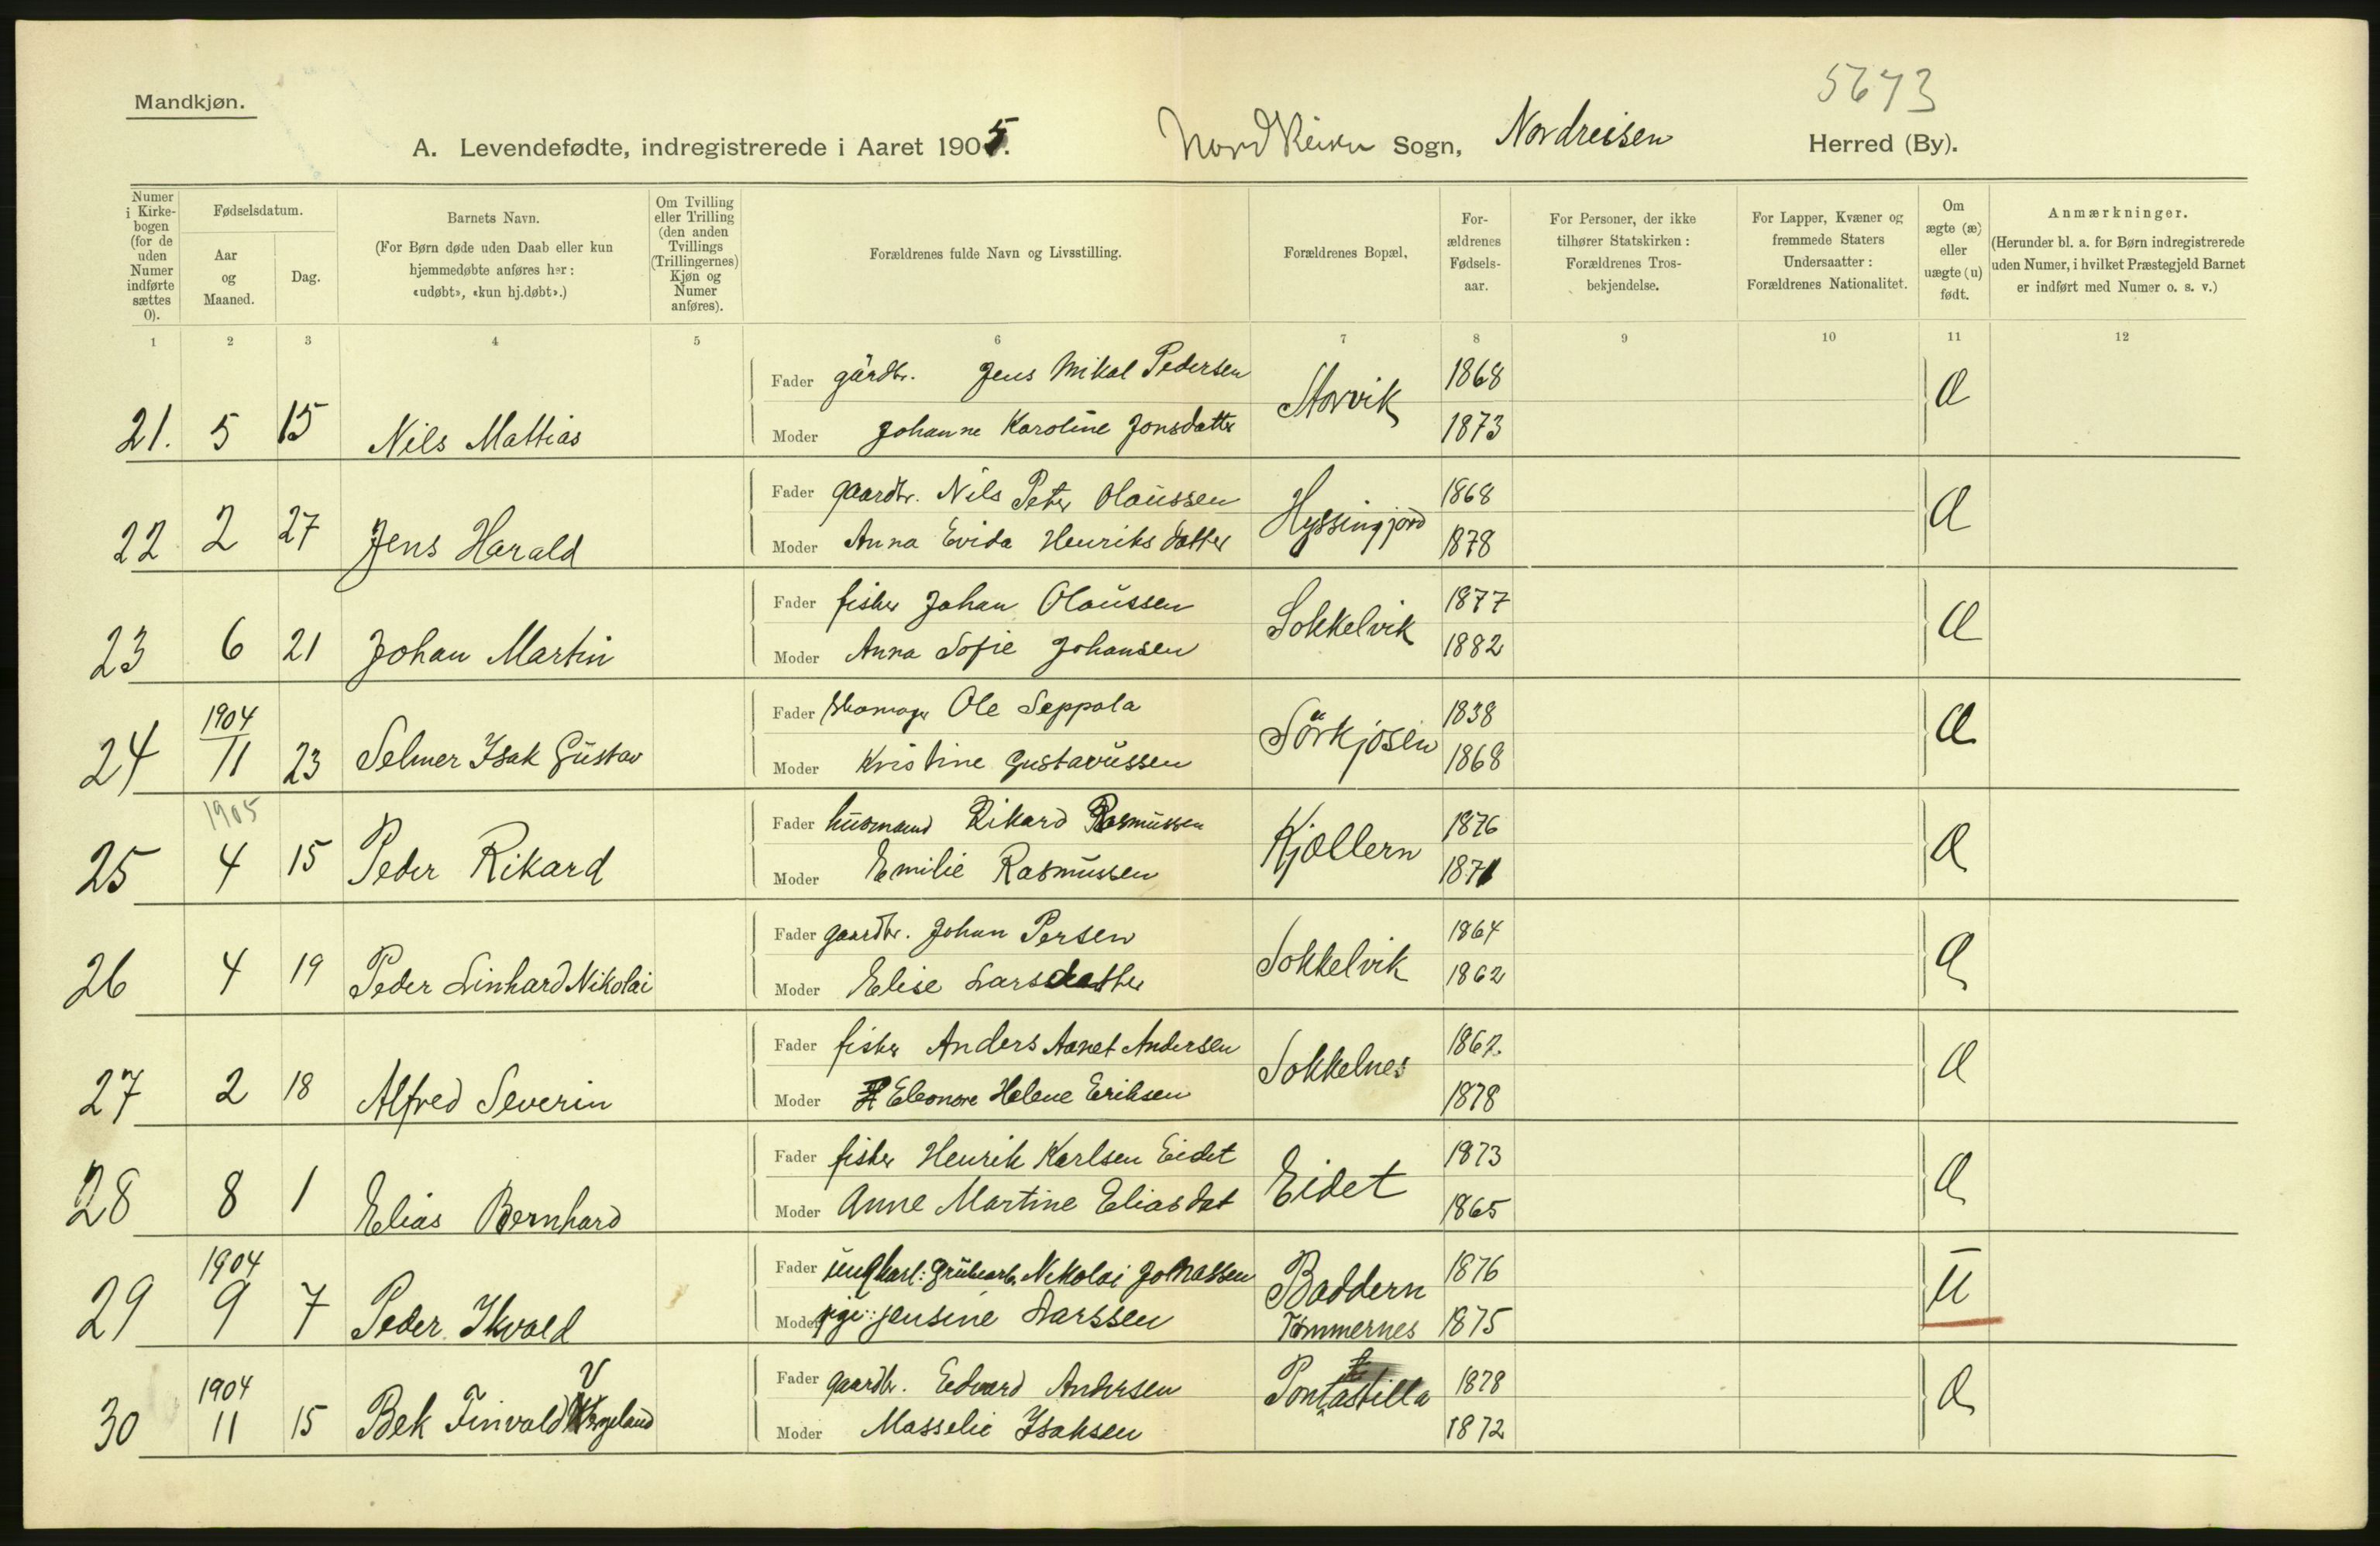 5673
Mandkjøn.
A. Levendefødte, indregistrerede i Aaret 1905. Nordreisen Sogn, Nordreisen Herred (By).
Numer i Kirkebogen (for de uden Numer indførte sættes 0).
Fødselsdatum.
Aar og Maaned.
Dag.
Barnets Navn.
(For Børn døde uden Daab eller kun hjemmedøbte anføres her: «udøbt», «kun hj.døbt».)
Om Tvilling eller Trilling (den anden Tvillings (Trillingernes) Kjøn og Numer anføres).
Forældrenes fulde Navn og Livsstilling.
Forældrenes Bopæl,
For-ældrenes Fødsels-aar.
For Personer, der ikke tilhører Statskirken: Forældrenes Tros-bekjendelse.
For Lapper, Kvæner og fremmede Staters Undersaatter: Forældrenes Nationalitet.
Om ægte (æ) eller uægte (u) født.
Anmærkninger.
(Herunder bl. a. for Børn indregistrerede uden Numer, i hvilket Præstegjeld Barnet er indført med Numer o. s. v.)
1 2 3 4 5 6 7 8 9 10 11 12
Fader gårdbr. Jens Mikal Pedersen Storvik 1868 Æ
21. 5 15 Nils Mattias Moder Johanne Karoline Jonsdatter 1873
Fader gaardbr. Nils Peter Olaussen Hyssingjord 1868 Æ
22 2 27 Jens Harald Moder Anna Evida Henriksdatter 1878
Fader fisker Johan Olaussen Sokkelvik 1877 Æ
23 6 21 Johan Martin Moder Anna Sofie Johansen 1882
1904 Fader skomager Ole Seppola Sörkjosen 1838 Æ
24 11 23 Selmer Isak Gustav Moder Kristine Gustavussen 1868
1905 Fader husmand Rikard Rasmussen Kjøllern 1876 Æ
25 4 15 Peder Rikard Moder Emilie Rasmussen 1871
Fader gaardbr. Johan Persen Sokkelvik 1864 Æ
26 4 19 Peder Linhard Nikolai Moder Elise Larsdatter 1862
Fader fisker Anders Aanet Andersen Sokkelnes 1862 Æ
27 2 18 Alfred Severin Moder Eleonore Helene Eriksen 1878
Fader fisker Henrik Karlsen Eidet Eidet 1873 Æ
28 8 1 Elias Bernhard Moder Anne Martine Eliasdat 1865
1904 Fader ungkarl: Grubearb. Nikolai Johnassen Baddern 1876 U
29 9 7 Peder Ikvald Moder pige: Jensine Larssen Tømmernes 1875
1904 Fader gaardbr. Edvard Andersen Pontastilla 1878 Æ
30 11 15 Bek Finvald Vergeland Moder Masselie Isaksen 1872